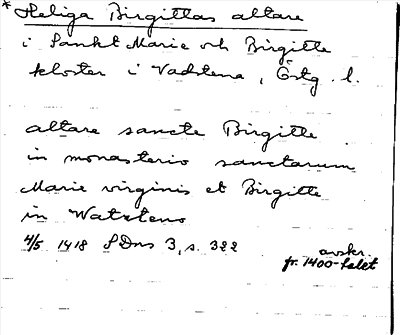 * Heliga Birgittas altare
i Sankt Marie och Birgitte
kloster i Vadstena, Östg. l.
altare sancte Birgitte
in monasterio sanctarum
Marie virginis et Birgitte
in Watzteno
4/5 1418 SDns 3, s. 322
avskr.
fr. 1400-talet